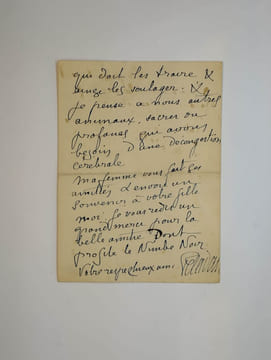 qui doit les traire &
ainsi les soulager.
je pense à nous autres
animaux, sacrés ou
profanes qui avons
besoin d'une decongestion
cerebrale
ma femme vous fait ses
amitiés & envoie un
souvenir à votre fille
moi, je vous redis un
grand merci pour la
belle amitié dont
profite le Nimbe Noir.
Votre respectueux ami